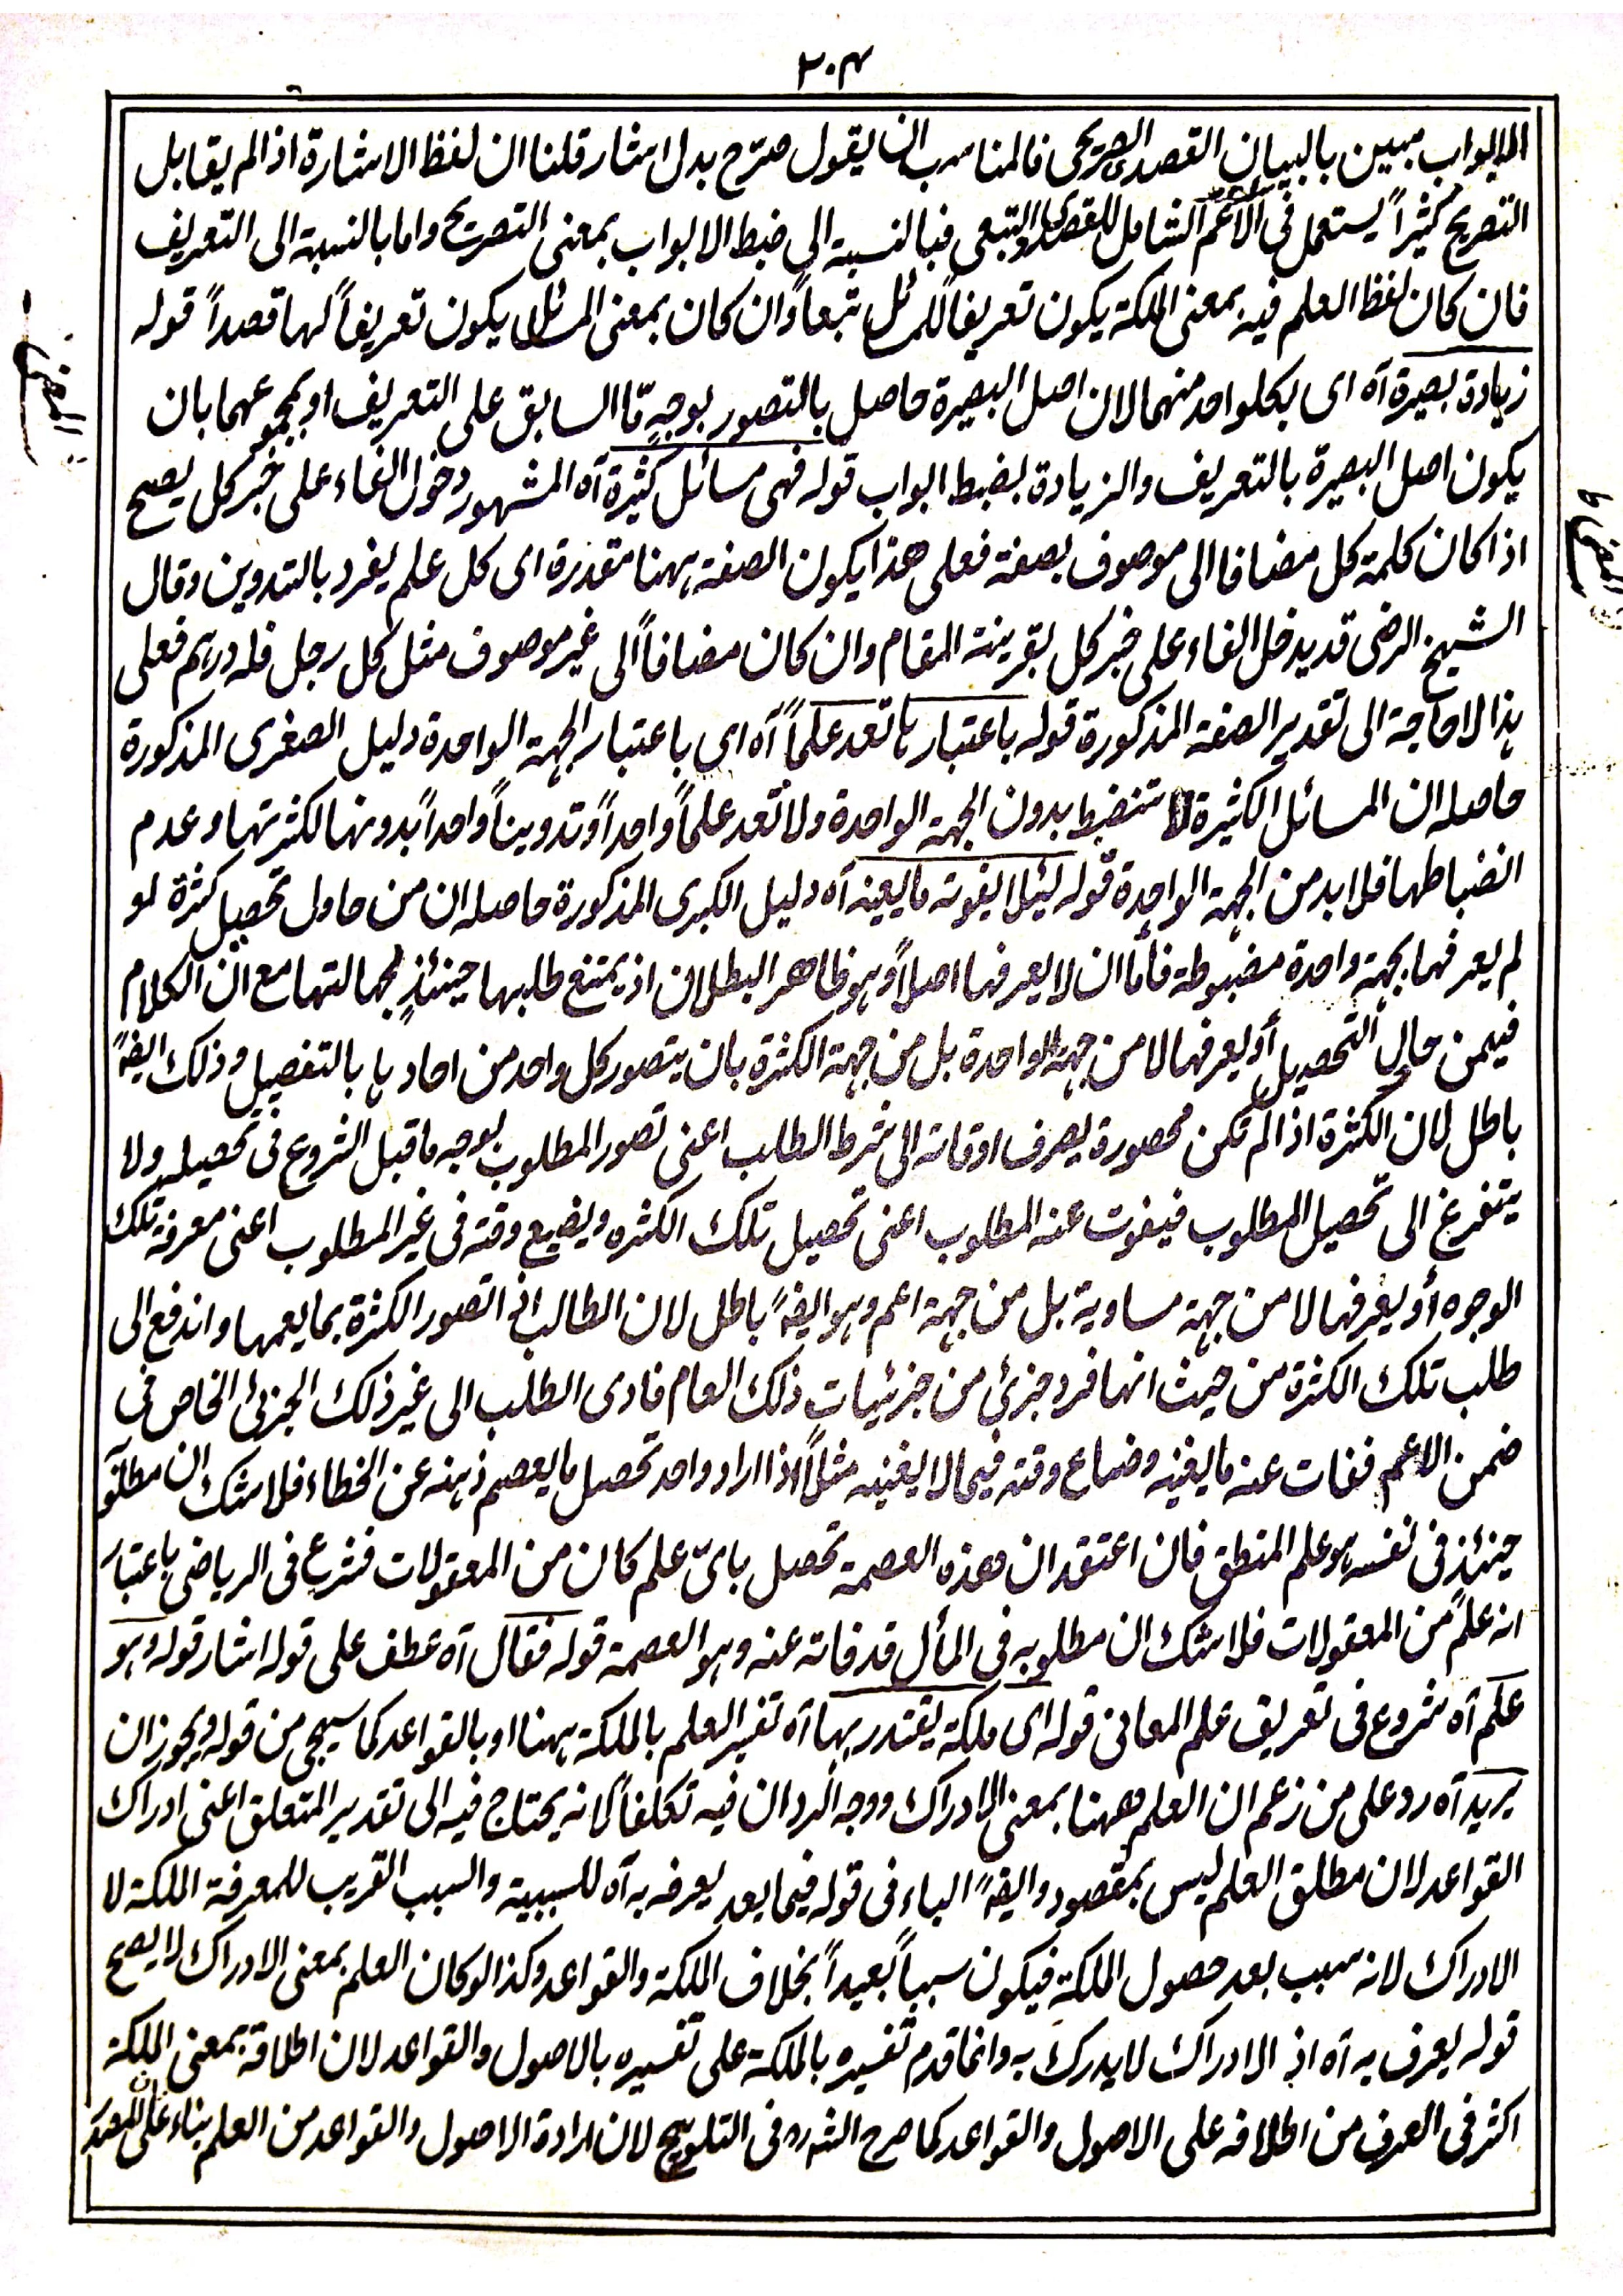 ٣٠٤
الابواب مبين بالبيان القصدى الصريحى فالمناسب ان يقول صرّح بدل اشار قلنا ان لفظ الاشارة اذا لم يقابل
التصريح كثيراً يستعمل فى الاعم الشامل للقصدى والتبعى فبالنسبة الى ضبط الابواب بمعنى التصريح واما بالنسبة الى التعريف
فان كان لفظ العلم فيه بمعنى الملكة يكون تعريفاً للمسائل تبعاً وان كان بمعنى المسائل يكون تعريفاً لها قصداً قوله
زيادة بصيرة آه اى بكلواحد منهما لان اصل البصيرة حاصل بالتصور بوجهٍ مّا السابق على التعريف او بمجموعهما بان
يكون اصل البصيرة بالتعريف والزيادة بضبط ابواب قوله فهى مسائل كثيرة آه المشهور دخول الفاء على خبر كل يصح
اذا كان كلمة كل مضافا الى موصوف بصفة فعلى هذا يكون الصفة ههنا مقدرة اى كل علم يفرد بالتدوين وقال
الشيخ الرضى قد يدخل الفاء على خبر كل بقرينة المقام وان كان مضافاً الى غير موصوف مثل كل رجل فله درهم فعلى
هذا لا حاجة الى تقدير الصفة المذكورة قوله باعتبارها تعد علماً آه اى باعتبار الجهة الواحدة دليل الصغرى المذكورة
حاصله ان المسائل الكثيرة لا تنضبط بدون الجهة الواحدة ولا تعد علماً واحداً وتدويناً واحداً بدونها لكثرتها وعدم
انضباطها فلا بد من الجهة الواحدة قوله لئلا يفوته ما يعينه آه دليل الكبرى المذكورة حاصله ان من حاول تحصيل كثرة لو
لم يعرفها بجهة واحدة مضبوطة فأما ان لا يعرفها اصلاً وهو ظاهر البطلان اذ يمتنع طلبها حينئذٍ لجهالتها مع ان الكلام
فيمن حاول التحصيل أو يعرفها لا من جهة الواحدة بل من جهة الكثرة بان يتصور كل واحد من احادها بالتفصيل وذلك ايضاً
باطل لان الكثرة اذا لم تكن محصورة يصرف اوقاته الى شرط الطلب اعنى تصور المطلوب بوجه ما قبل الشروع فى تحصيله ولا
يتفرغ الى تحصيل المطلوب فيفوت عنه المطلوب اعنى تحصيل تلك الكثره ويضيع وقته فى غير المطلوب اعنى معرفة تلك
الوجوه أو يعرفها لا من جهة مساوية بل من جهة اعم وهو ايضاً باطل لان الطالب اذا تصور الكثرة بما يعمها واندفع الى
طلب تلك الكثرة من حيث انها فرد جزئ من جزئيات ذلك العام فادى الطلب الى غير ذلك الجزئ الخاص فى
ضمن الاعم ففات عنه ما يعنيه وضاع وقته فيما لا يعنيه مثلاً اذا اراد واحد تحصيل ما يعصم ذهنه عن الخطاء فلا شك ان مطلوبه
حينئذٍ فى نفسه هو علم المنطق فان اعتقد ان هذه العصمة تحصل باىّ علم كان من المعقولات فشرع فى الرياضى باعتبار
انه علم من المعقولات فلا شك ان مطلوبه فى المأل قد فاته عنه وهو العصمة قوله فقال آه عطف على قوله اشار قوله وهو
علم آه شروع فى تعريف علم المعانى قوله اى ملكة يقتدر بها آه تفسير العلم بالملكة ههنا او بالقواعد كما سيجى من قوله ويجوز ان
يريد آه رد على من زعم ان العلم ههنا بمعنى الادراك ووجه الرد ان فيه تكلفاً لانه يحتاج فيه الى تقدير المتعلق اعنى ادراك
القواعد لان مطلق العلم ليس بمقصود وايضاً الباء فى قوله فيما بعد يعرفه به آه للسببية والسبب القريب للمعرفة الملكة لا
الادراك لانه سبب بعد حصول الملكة فيكون سبباً بعيداً بخلاف الملكة والقواعد وكذا لو كان العلم بمعنى الادراك لا يصح
قوله يعرف به آه اذ الادراك لا يدرك به وانما قدم تفسيره بالملكة على تفسيره بالاصول والقواعد لان اطلاقه بمعنى الملكة
اكثر فى العرف من اطلاقه على الاصول والقواعد كما صرح الشاره فى التلويح لان ارادة الاصول والقواعد من العلم بناء على